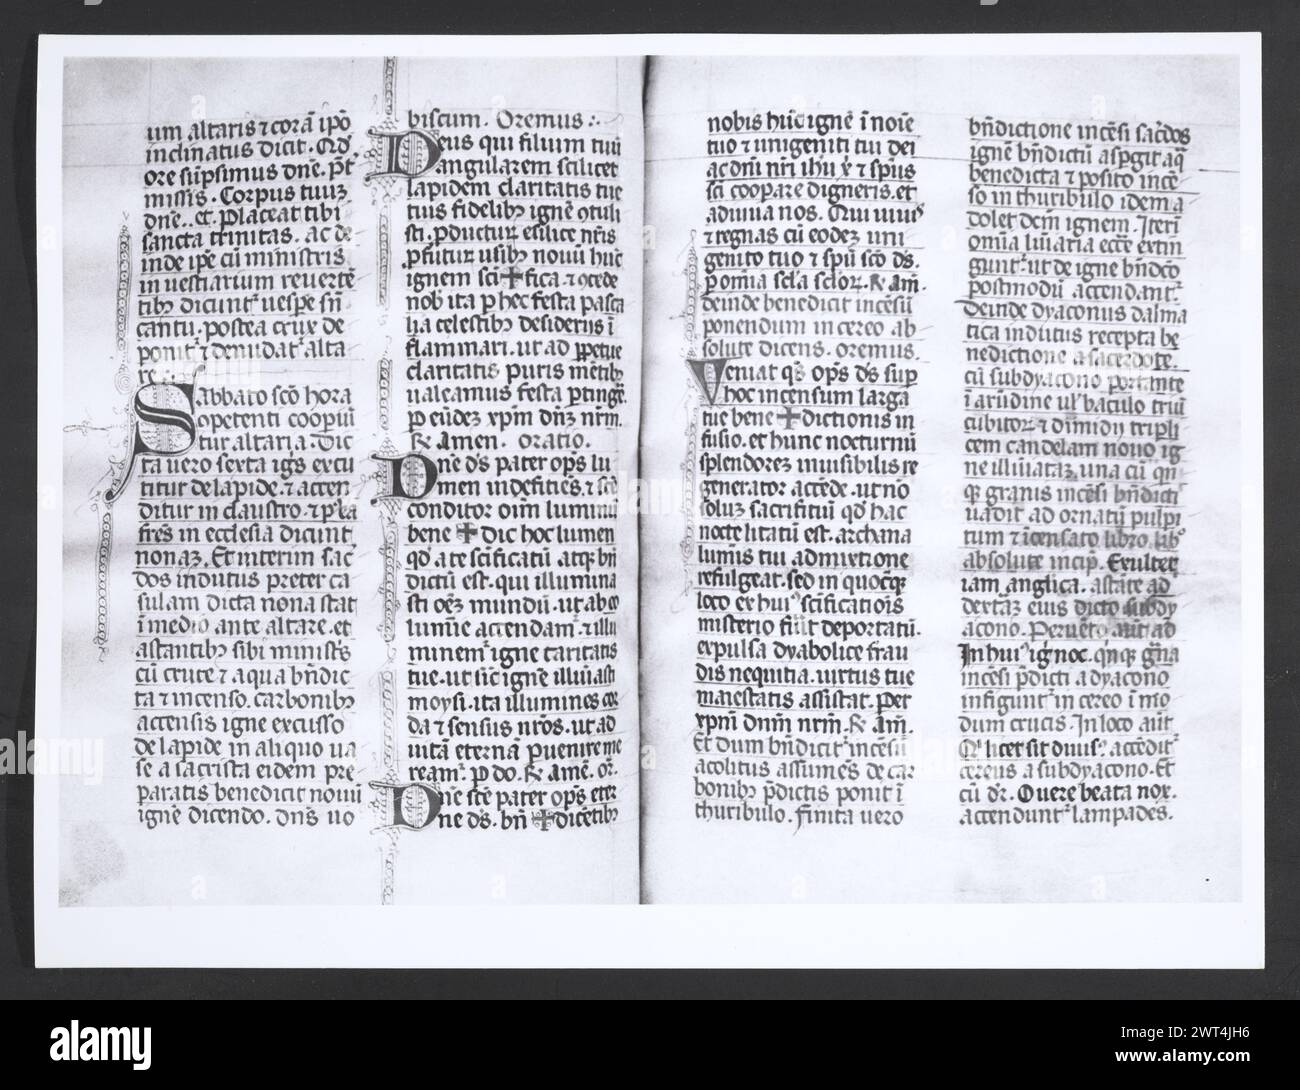 um altaris ⁊ corā ip̄o
inclinatus dicit. Qd̄
ore sūpsimus dn̄e. P̄t
missis. Corpus tuuꝫ
dn̄e. et. Placeat tibi
sancta trinitas. ac de
inde ip̄e cū ministris
in vestiarium revertē
tibꝫ dicunt᷑ vesp̄e sn̄
cantu. postea crux de
ponit᷑ ⁊ denudat᷑ alta
re
Sabbato scō hora
opetenti coopiū
tur altaria. Dic
ta vero sexta
titur de lapide. ⁊ accen
ditur in claustro. ⁊ p̄la
fr̄es in ecclesia dicunt
nonaꝫ. Et interim sac̄
dos indutus preter ca
sulam dicta nona stat
ī medio ante altare. et
astantibꝫ sibi minists̄
cū cruce ⁊ aqua bn̄dic
ta ⁊ incenso. carbonibꝫ
accensis igne excusso
de lapide in aliquo ua
se a sacrista eidem pre
paratis benedicit nouū
ignē dicendo. dn̄s uo
biscum. Oremus :.
Deus qui filium tuū
angularem scilicet
lapidem claritatis tue
tuis fidelibꝫ ignē ꝯtuli
sti. ꝓductuꝫ e silice nr̄is
ꝓfutuꝫ usibꝫ nouū huc̄
ignem sc̄i✠fica. ⁊ ꝯcede
nob ita p hec festa pasca
lia celestibꝫ desideriis ī
flammari. ut ad ꝑpetue
claritatis puris mētibꝫ
ualeamus festa ꝑtingē.
ꝑ eūdeꝫ xp̄m dn̄ꝫ nr̄m.
℟. amen. oratio.
Dn̄e ds̄ pater op̄s lu
men indeficiēs. ⁊ scē
conditor oīm luminū
bene ✠ dic hoc lumen
qd̄ a te sc̄ificatū atqꝫ bn̄
dictū est. qui illumina
sti oēꝫ mundū. ut ab eo
lumīe accendam᷑. ⁊ illu
minem᷑ igne caritatis
tue. ut sic̄ ignē illuīasti
moysi. ita illumines cor
da ⁊ sensus nr̄os. ut ad
uitā eternā ꝑuenire me
ream᷑. ꝑ do. ℟. amē. or̄.
Dn̄e scē pater op̄s eter̄
ne ds̄. bn̄ ✠ dicētibꝫ
nobis huc̄ ignē ī noīe
tuo ⁊ unigeniti tui dei
ac dn̄i nr̄i ihu x̄ ⁊ sp̄us
sc̄i cooꝑare digneris. et
adiuua nos. Qui uiuis
⁊ regnas cū eodeꝫ uni
genito tuo ⁊ sp̄u scō ds̄.
ꝑ om̄ia scl̄a scl̄oꝝ. ℟. am̄.
deinde benedicit incēsū
ponendum in cereo ab
solute dicens. oremus.
Veniat qs̄ op̄s ds̄ suꝑ
hoc incensum larga
tue bene ✠ dictionis in
fusio. et hunc nocturnū
splendoreꝫ inuisibilis re
generator accēde. ut nō
soluꝫ sacrifitiū qd̄ hac
nocte litatū est. archana
lumīs tui admixtione
refulgeat. sed in quocūqꝫ
loco ex huiꝰ sc̄ificatiōīs
misterio fūit deportatū.
expulsa dyabolice frau
dis nequitia. uirtus tue
maiestatis assistat. Per
xp̄m dn̄m nr̄m. ℟. am̄.
Et dum bn̄dicit᷑ incēsū
acolitus assumēs de car
bonibꝫ p̄dictis ponit ī
thuribulo. finita vero
bn̄dictione incēsi sac̄dos
ignē bn̄dictū asp̄git aq̄
benedicta ⁊ posito incē
so in thuribulo idem a
dolet dc̄m ignem. Iterū
omīa luīaria ecc̄e extin
gunt᷑. ut de igne bn̄dc̄o
postmodū accendant᷑.
Deinde dyaconus dalma
tica indutus recepta be
nedictione a sacerdote.
cū subdyacono portante
ī arūdine ul̓ baculo triū
cubitoꝝ ⁊ dimidij tripli
cem candelam nouo ig
ne illuīataꝫ. una cū qn̄
qꝫ granis incēsi bn̄dicti
uadit ad ornatū pulpi
tum ⁊ icensato libro. libꝰ
absolute incip̄. Exultet
iam anglica. astāte ad
dextāꝫ eius dicto subdy
acono. Peruēto aūt ad
In huiꝰ ignoc. qn̄qꝫ gn̄a
incēsi p̄dicti a dyacono
infigunt᷑ in cereo ī mo
dum crucis. In loco aūt
Qi licet sit diuisꝰ. accēdit᷑
cereus a subdyacono. Et
cū dr̄. O uere beata nox.
accendunt᷑ lampades.
alamy
Image ID: 2WT4JH6
www.alamy.com